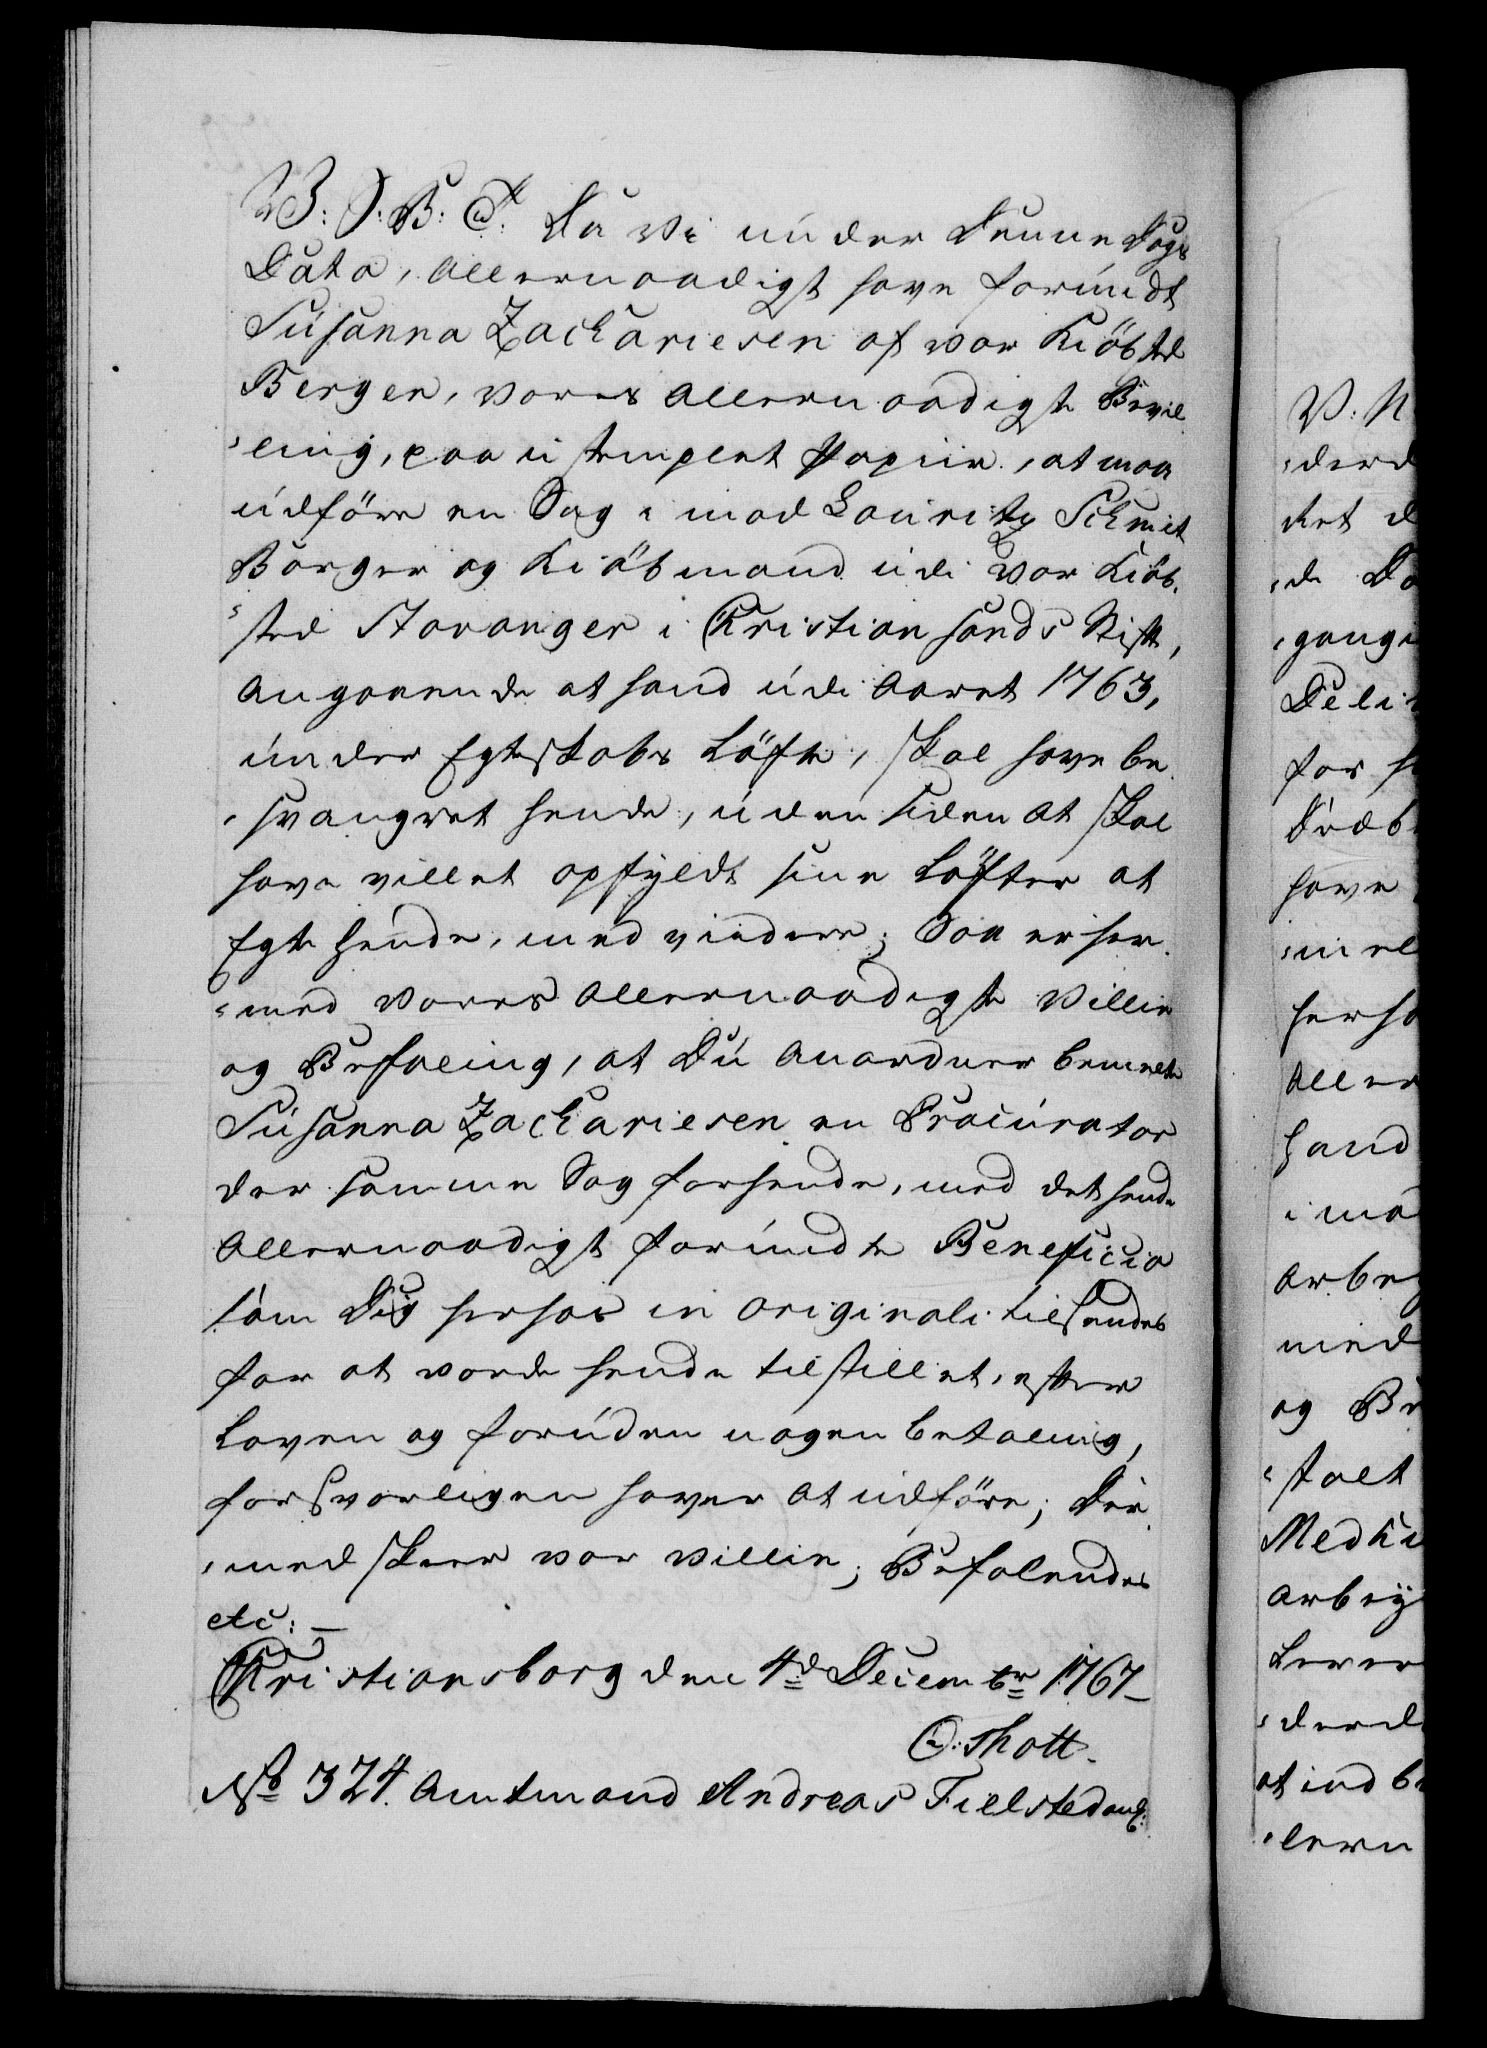 V: S: B: T: Da Vi under Denne Dags
Dato, Allernaadigst have forundt
Susanna Zachariesen af vor Kiöbsted
Bergen, Vores Allernaadigste Bevil
ling, paa ustemplet Papiir, at maa
udföre en Sag imod Lauritz Schmit
Borger og Kiöbmand udi Vor Kiöb,
sted Stavanger i Christiansands Stift,
Angaaende at hand udi Aaret 1763,
under Egteskabs Löfte, skal have be,
svangret hende, uden siden at skal
have villet opfyldt sine Löfter at
Egte hende, med videre; Saa er her,
med Vores Allernaadigste Villie
og Befaling, at Du Anordner bemelte
Susanna Zachariesen en Procurator
der samme Sag for hende, med det hende
Allernaadigst forundte Beneficio
som Dig herhos in originali tilsendes
for at vorde hende tilstillet, efter
Loven og foruden nogen betaling,
forsvarligen haver at udföre; Der,
med skeer vor Villie, Befalendes
etc: —
Christiansborg den 4de Decembr 1767
O: Thott.
No 324. Amtmand Andreas Fielsted ang:
V. N
derd
ket d
de Da
gangi
Deli
for h
have
mel
herho
Aller
hand
imod
Arbey
med
og Be
stalt
Medici
Arbey
Lever
derd
at indb
lern